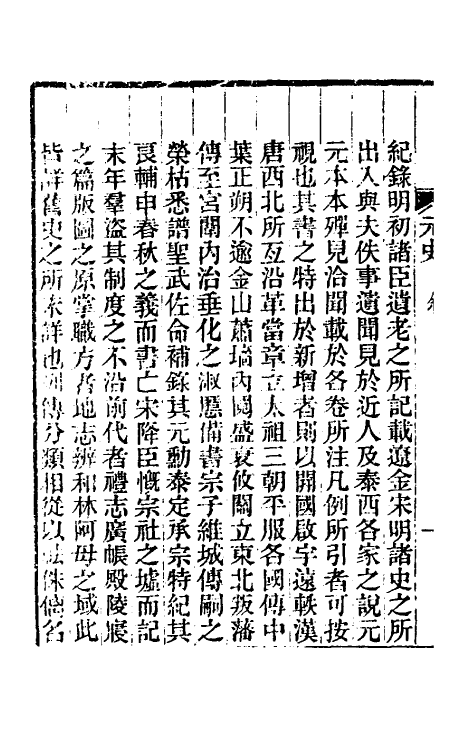 元史
紀錄明初諸臣遺老之所記載遼金宋明諸史之所
出入與夫佚事遺聞見於近人及泰西各家之說元
元本本殫見洽聞載於各卷所注凡例所引者可按
視也其書之特出於新增者則以開國啟宇遠軼漢
唐西北所亙沿革當章立太祖三朝平服各國傳中
葉正朔不逾金山蕭墻內鬩盛衰攸關立東北叛藩
傳至宮闈內治垂化之淑慝備書宗子維城傳嗣之
榮枯悉譜聖武佐命補錄其元勳泰定承宗特紀其
良輔申春秋之義而書亡宋降臣慨宗社之墟而記
末年羣盜其制度之不沿前代者禮志廣帳殿陵寢
之篇版圖之原掌職方者地志辨和林阿母之域此
皆詳舊史之所未詳也列傳分類相從以